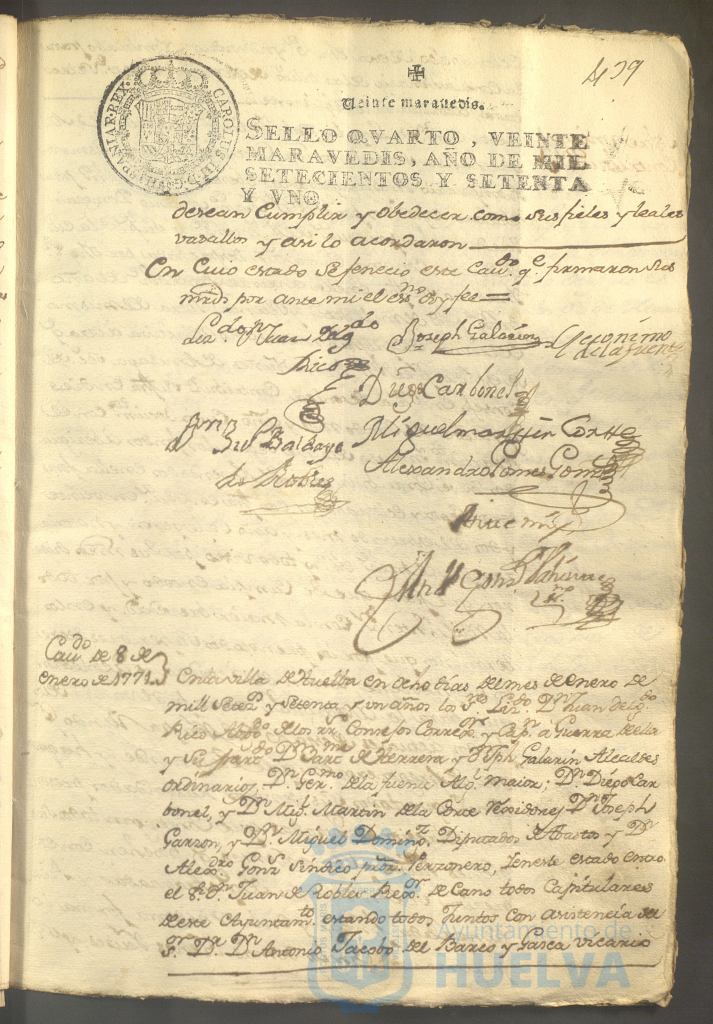 439
✠
Veinte maravedis.
CAROLUS III D.G. HISPANIAR. REX.
SELLO QVARTO, VEINTE
MARAVEDIS, AÑO DE MIL
SETECIENTOS Y SETENTA
Y VNO.
desean Cumplir y obedecer como sus fieles y leales
vasallos y asi lo acordaron
En cuio estado se fenecio este Cavdo. qe. firmaron sus
mrds por ante mi el essno. doy fee =
Lizdo. Dn. Juan Delgdo
Rico
Joseph Galarin
Geronimo
de la fuente
Diego Carbonel
Miguel martin Corte
de Robles
Alexandro Gomes
Ante mi
Cavdo. de 8 de
enero de 1771
En la villa de Huelba en ocho dias del mes de enero de
mill Setezs. y Setenta y un años los Sres. Lizdo. Dn. Juan Delgdo.
Rico Abogdo. de los rrs. Consejos Corregr. y Capn. a Guerra de ella
y Su partdo. Dn. Bartme. de Herrera y Dn. Jph Galarin Alcaldes
ordinarios, Dn. Germo. de la fuente Algl. maior; Dn. Diego Car
bonel, y Dn. Migl. Martin de la Corte Rexidores, Dn. Joseph
Garzon, y Dn. Miguel Domingz. Diputados de Abastos y Dn.
Alexdro Gomz Sindico pror. Perzonero, en este estado entro
el Sr. Dn. Juan de Robles Rexor. de Cano todos Capitulares
de este Ayuntamto. estando todos Juntos Con asistencia del
Sr. Dr. Dn. Antonio Jacobo del Barco y Gasca vicario
Ayuntamiento de
HUELVA